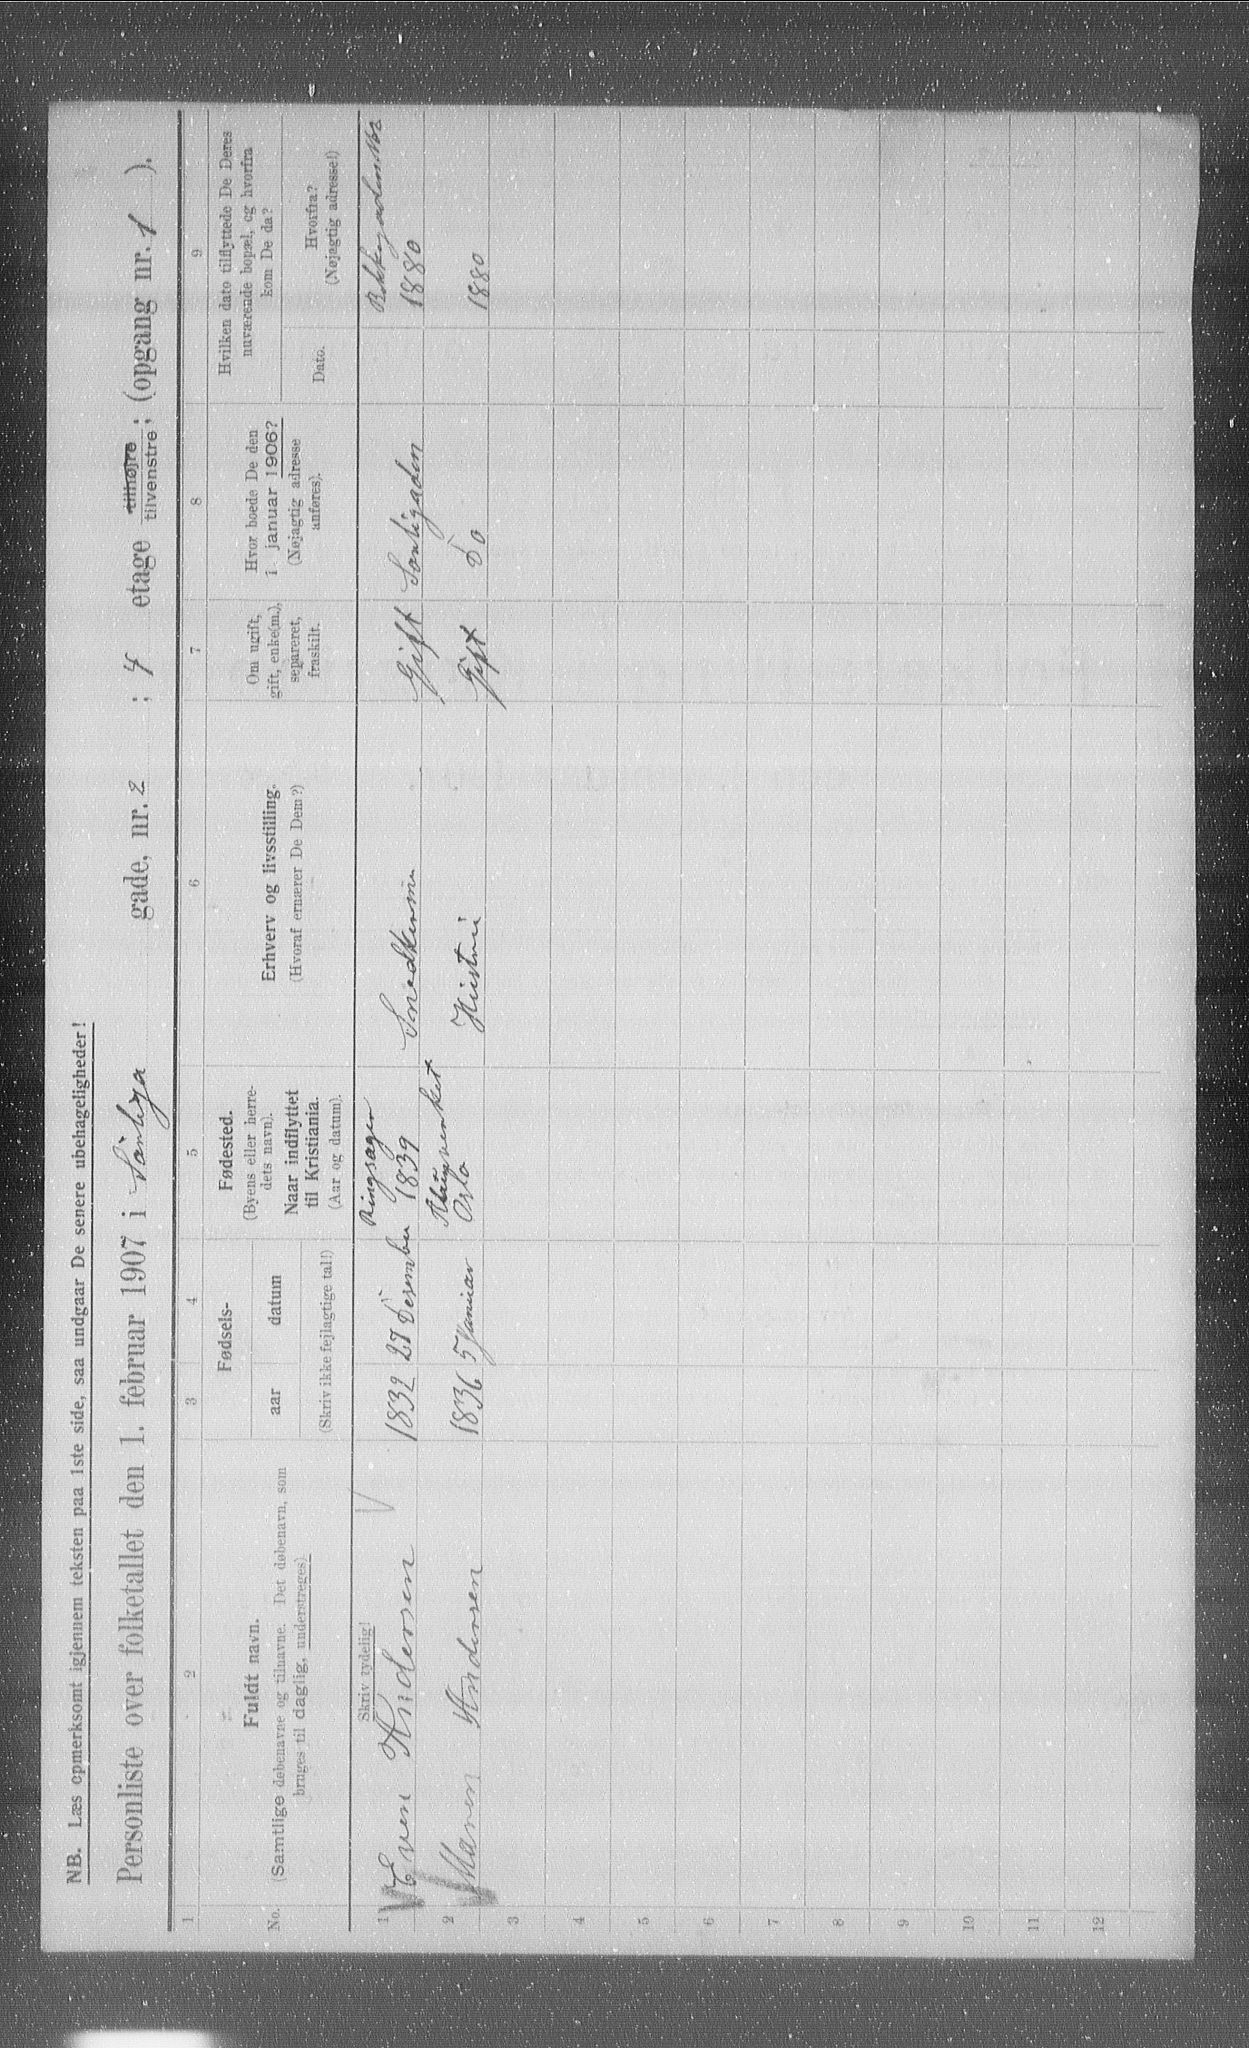 NB. Læs opmerksomt igjennem teksten paa 1ste side, saa undgaar De senere ubehageligheder!
Personliste over folketallet den 1. februar 1907 i Sørliga gade, nr. 2 ; 4 etage tilhøjre tilvenstre; (opgang nr. 1 ).
1 2 3 4 5 6 7 8 9
No.
Fuldt navn.
(Samtlige døbenavne og tilnavne. Det døbenavn, som
bruges til daglig, understreges)
Fødsels-
aar datum
(Skriv ikke fejlagtige tal!)
Fødested.
(Byens eller herre-
dets navn).
Naar indflyttet
til Kristiania.
(Aar og datum).
Erhverv og livsstilling.
(Hvoraf ernærer De Dem?)
Om ugift,
gift, enke(m.),
separeret,
fraskilt.
Hvor boede De den
1. januar 1906?
(Nøjagtig adresse
anføres).
Hvilken dato tilflyttede De Deres
nuværende bopæl, og hvorfra
kom De da?
Dato.
Hvorfra?
(Nøjagtig adresse!)
Skriv tydelig!
Ringsager
1 Even Andersen 1832 27 Desember 1839 Gift Sørligaden 1880
2 Maren Andersen 1836 5 Januar Oslo Hustru Gift Do 1880
3
4
5
6
7
8
9
10
11
12